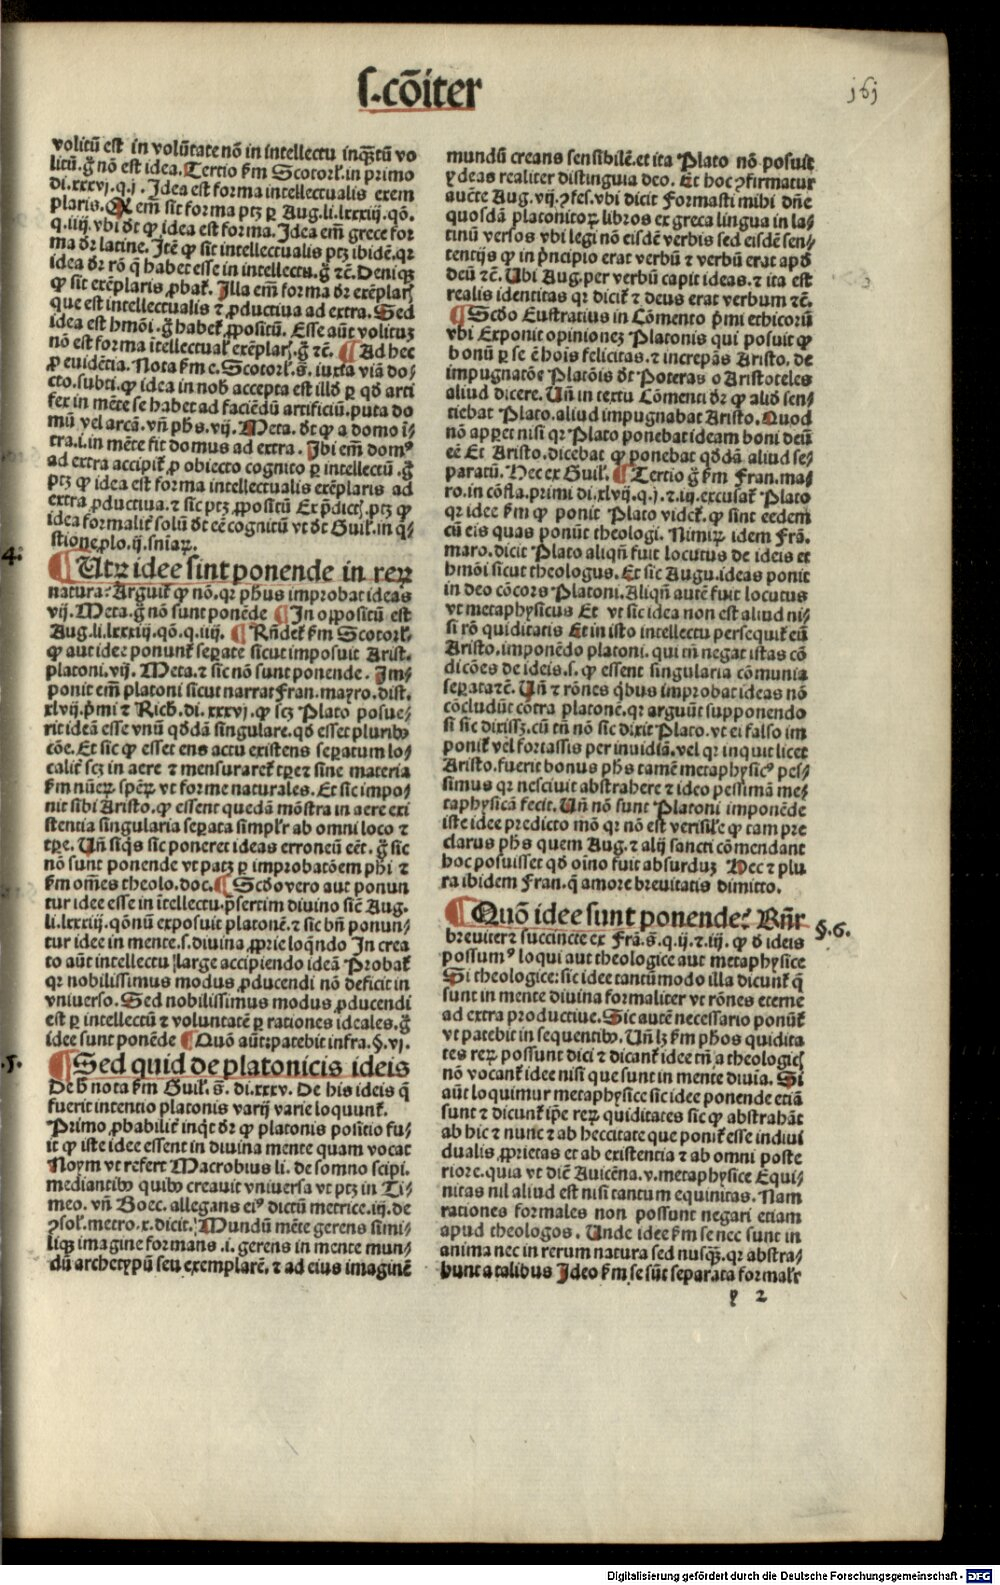 ſ.cōiter
161
volitū est in volūtate nō in intellectu inqꝫtū vo
litū.g̃ nō est idea.Tertio ẜm Scotorꝭ.in primo
di.xxxvj.q.j. Idea est forma intellectualis exem
plaris. Qꝛ em̄ sit forma ptꝫ ꝑ Aug.li.lxxxiij.qō.
q.iiij.vbi dt̄ ꝙ idea est forma.Idea em̄ grece for
ma dr̄ latine.Itē ꝙ sit intellectualis ptꝫ ibidē.qꝛ
idea dr̄ rō q̄ habet esse in intellectu.g̃ ⁊c̄.Deniqꝫ
ꝙ sit exēplaris ꝓbaꝉ. Illa em̄ forma dr̄ exēplarꝭ
que est intellectualis ⁊ ꝓductiua ad extra.Sed
idea est hmōi.g̃ habeꝉ ꝓpositū. Esse aūt volituꝫ
nō est forma ītellectualꝭ exēplarꝭ.g̃ ⁊c̄. ¶ Ad hec
ꝓ euidētia.Nota ẜm e.Scotorꝭ.s̄. iuxta viā do⸗
cto.subti.ꝙ idea in nob̄ accepta est illd̄ ꝑ qd̄ arti
fex in mēte se habet ad faciēdū artificiū.puta do
mū vel arcā.vn̄ ph̄s.vij.Meta. dt̄ ꝙ a domo ī⸗
tra.i.in mēte fit domus ad extra. Ibi em̄ domꝰ
ad extra accipiꝉ ꝓ obiecto cognito ꝑ intellectū.g̃
ptꝫ ꝙ idea est forma intellectualis exēplaris ad
extra ꝓductiua.⁊ sic ptꝫ ꝓpositū Ex p̄dictꝭ.ptꝫ ꝙ
idea formalit̄ solū dt̄ eē cognitū vt dt̄ Guilꝭ.in q̄⸗
stione.plo.ij.sniaꝝ.
4.
¶ Utꝝ idee sint ponende in reꝝ
natura? Arguiꝉ ꝙ nō.qꝛ ph̄us improbat ideas
vij.Meta.g̃ nō sunt ponēde ¶ In oppositū est
Aug.li.lxxxiij.qō.q.iiij. ¶ Rn̄deꝉ ẜm Scotorꝭ.
ꝙ aut idee ponunꝉ seꝑate sicut imposuit Arist.
platoni.vij. Meta.⁊ sic nō sunt ponende. Im⸗
ponit em̄ platoni sicut narrat Fran.mayro.dist.
xlvij.p̄mi ⁊ Rich.di.xxxvj.ꝙ scꝫ Plato posue⸗
rit ideā esse vnū qd̄dā singulare.qd̄ esset pluribꝰ
cōe.Et sic ꝙ esset ens actu existens seꝑatum lo⸗
calit̄ scꝫ in aere ⁊ mensurareꝉ tꝑe ⁊ sine materia
ẜm nūeꝝ.spēꝝ vt forme naturales.Et sic impo⸗
nit sibi Aristo.ꝙ essent quedā mōstra in aere exi
stentia singularia seꝑata simplꝛ ab omni loco ⁊
tꝑe. Un̄ siqͥs sic poneret ideas erroneū eēt.g̃ sic
nō sunt ponende vt patꝫ ꝑ improbatōem ph̄i ⁊
ẜm om̄es theolo.doc.¶ Scd̄o vero aut ponun
tur idee esse in ītellectu.p̄sertim diuino sic̄ Aug.
li.lxxiij.qōnū exposuit platonē.⁊ sic bn̄ ponun⸗
tur idee in mente.s.diuina ꝓprie loqn̄do In crea
to aūt intellectu large accipiendo ideā Probaꝉ
qꝛ nobilissimus modus ꝓducendi nō deficit in
vniuerso.Sed nobilissimus modus ꝓducendi
est ꝑ intellectū ⁊ voluntatē ꝑ rationes ideales.g̃
idee sunt ponēde ¶ Quō aūt patebit infra.§.vj.
.5.
¶ Sed quid de platonicis ideis
De h̄ nota ẜm Guilꝭ.s̄. di.xxxv. De his ideis q̄
fuerit intentio platonis varij varie loquunꝉ.
Primo ꝓbabilit̄ inqͥt dr̄ ꝙ platonis positio fu⸗
it ꝙ iste idee essent in diuina mente quam vocat
Noym vt refert Macrobius li. de somno scipi.
mediantibꝰ quibꝰ creauit vniuersa vt ptꝫ in Ti⸗
meo. vn̄ Boec. allegans eiꝰ dictū metrice.iij.de
ꝯsol.metro.x.dicit. Mundū mēte gerens simi⸗
liqꝫ imagine formans .i. gerens in mente mun⸗
dū archetypū seu exemplarē.⁊ ad eius imaginē
mundū creans sensibilē.et ita Plato nō posuit
ydeas realiter distingui a deo. Et hoc ꝯfirmatur
auc̄te Aug.vij.ꝯfes.vbi dicit Formasti mihi dn̄e
quosdā platonicoꝝ libros ex greca lingua in la⸗
tinū versos vbi legi nō eisdē verbis sed eisdē sen⸗
tentijs ꝙ in p̄ncipio erat verbū ⁊ verbū erat apd̄
deū ⁊c̄. Ubi Aug.per verbū capit ideas.⁊ ita est
realis identitas qꝛ diciꝉ ⁊ deus erat verbum ⁊c̄.
¶ Scd̄o Eustratius in Cōmento p̄mi ethicorū
vbi Exponit opinionez Platonis qui posuit ꝙ
bonū ꝑ se ē hoīs felicitas.⁊ increpās Aristo. de
impugnatōe Platōis dt̄ Poteras o Aristoteles
aliud dicere. Un̄ in textu Cōmenti dr̄ ꝙ alid̄ sen⸗
tiebat Plato.aliud impugnabat Aristo.Quod
nō apꝑet nisi qꝛ Plato ponebat ideam boni deū
eē Et Aristo.dicebat ꝙ ponebat qd̄dā aliud se⸗
paratū. Hec ex Guilꝭ. ¶ Tertio g̃ ẜm Fran.ma⸗
ro.in cōfla.primi di.xlvij.q.j.⁊.iij.excusaꝉ Plato
qꝛ idee ẜm ꝙ ponit Plato videꝉ.ꝙ sint eedem
cū eis quas ponūt theologi. Nimiꝝ idem Frā.
maro.dicit Plato aliqn̄ fuit locutus de ideis et
hmōi sicut theologus. Et sic Augu.ideas ponit
in deo cōcors Platoni.Aliqn̄ autē fuit locutus
vt metaphysicus Et vt sic idea non est aliud ni⸗
si rō quiditatis Et in isto intellectu persequiꝉ eū
Aristo.imponēdo platoni.qui tn̄ negat istas cō
dicōes de ideis.s. ꝙ essent singularia cōmunia
seꝑata ⁊c̄. Un̄ ⁊ rōnes qͥbus improbat ideas nō
cōcludūt cōtra platonē.qꝛ arguūt supponendo
si sic dixissꝫ.cū tn̄ nō sic dixit Plato.vt ei falso im
poniꝉ vel fortassis per inuidiā.vel qꝛ inquit licet
Aristo.fuerit bonus ph̄s tamē metaphysicꝰ pes⸗
simus qꝛ nesciuit abstrahere ⁊ ideo pessimā me⸗
taphysicā fecit. Un̄ nō sunt Platoni imponēde
iste idee predicto mō qꝛ nō est verisilꝉe ꝙ tam pre
clarus ph̄s quem Aug.⁊ alij sancti cōmendant
hoc posuisset qd̄ oīno fuit absurduꝫ Hec ⁊ plu
ra ibidem Fran.q̄ amore breuitatis dimitto.
¶ Quō idee sunt ponende? Rn̄r
§.6.
breuiter ⁊ succincte ex Frā.s̄.q.ij.⁊.iij. ꝙ d̄ ideis
possumꝰ loqui aut theologice aut metaphysice
Si theologice: sic idee tantūmodo illa dicunꝉ q̄
sunt in mente diuina formaliter vt rōnes eterne
ad extra productiue. Sic autē necessario ponūꝉ
vt patebit in sequentibꝰ. Un̄ lꝫ ẜm ph̄os quidita
tes reꝝ possunt dici ⁊ dicanꝉ idee tn̄ a theologicꝭ
nō vocanꝉ idee nisi que sunt in mente diuīa. Si
aūt loquimur metaphysice sic idee ponende etiā
sunt ⁊ dicunꝉ ip̄e reꝝ quiditates sic ꝙ abstrahāt
ab hic ⁊ nunc ⁊ ab hecceitate que poniꝉ esse indiui
dualis ꝓprietas et ab existentia ⁊ ab omni poste
riore.quia vt dic̄ Auicēna.v.metaphysice Equi⸗
nitas nil aliud est nisi tantum equinitas. Nam
rationes formales non possunt negari etiam
apud theologos. Unde idee ẜm se nec sunt in
anima nec in rerum natura sed nusqꝫ.qꝛ abstra⸗
hunt a talibus Ideo ẜm se sūt separata formalꝛ
y 2
Digitalisierung gefördert durch die Deutsche Forschungsgemeinschaft - DFG